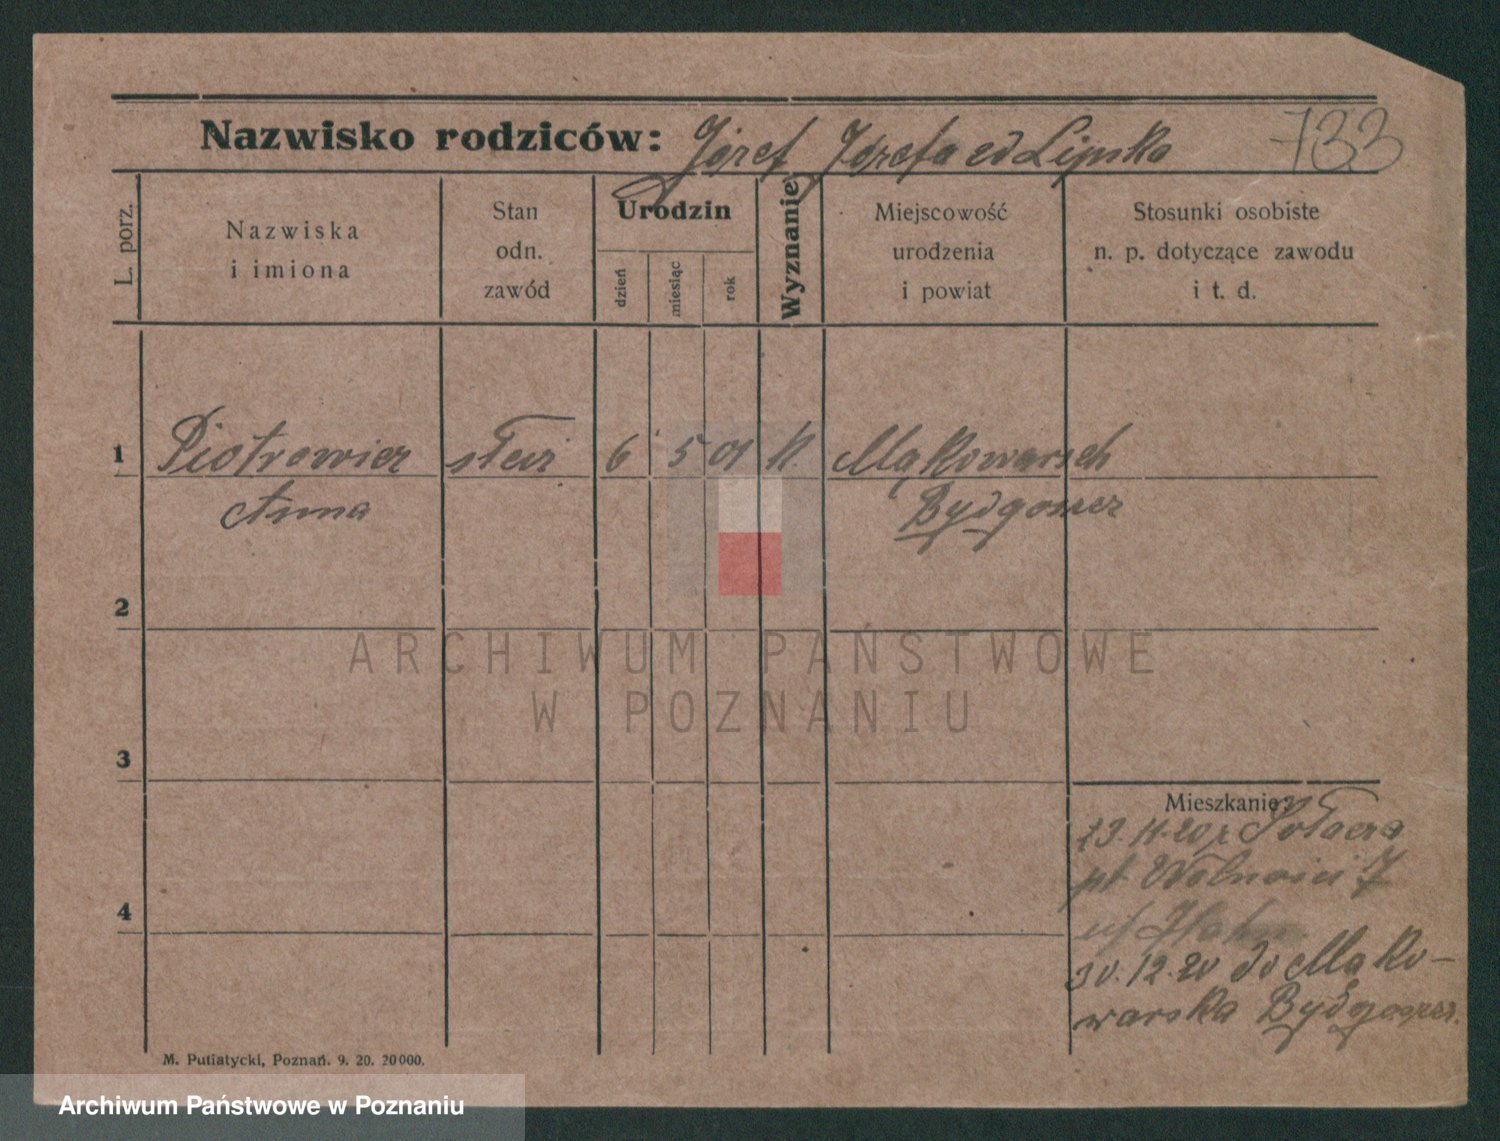 Nazwisko rodziców: Józef Józefa ed Lipska 733
L. porz.
Nazwiska
i imiona
Stan
odn.
zawód
Urodzin
dzień
miesiąc
rok
Wyznanie
Miejscowość
urodzenia
i powiat
Stosunki osobiste
n. p. dotyczące zawodu
i t. d.
1 Piotrowicz 6 5 01 K. Mąkowarsch
Anna Bydgoszcz
2
ARCHIWUM PAŃSTWOWE
W POZNANIU
3
Mieszkanie:
23.11.20 z Sołacza
pl Wolności 7
4
30.12.20 do Mąko-
warska Bydgoszcz.
M. Putiatycki, Poznań. 9. 20. 20000.
Archiwum Państwowe w Poznaniu